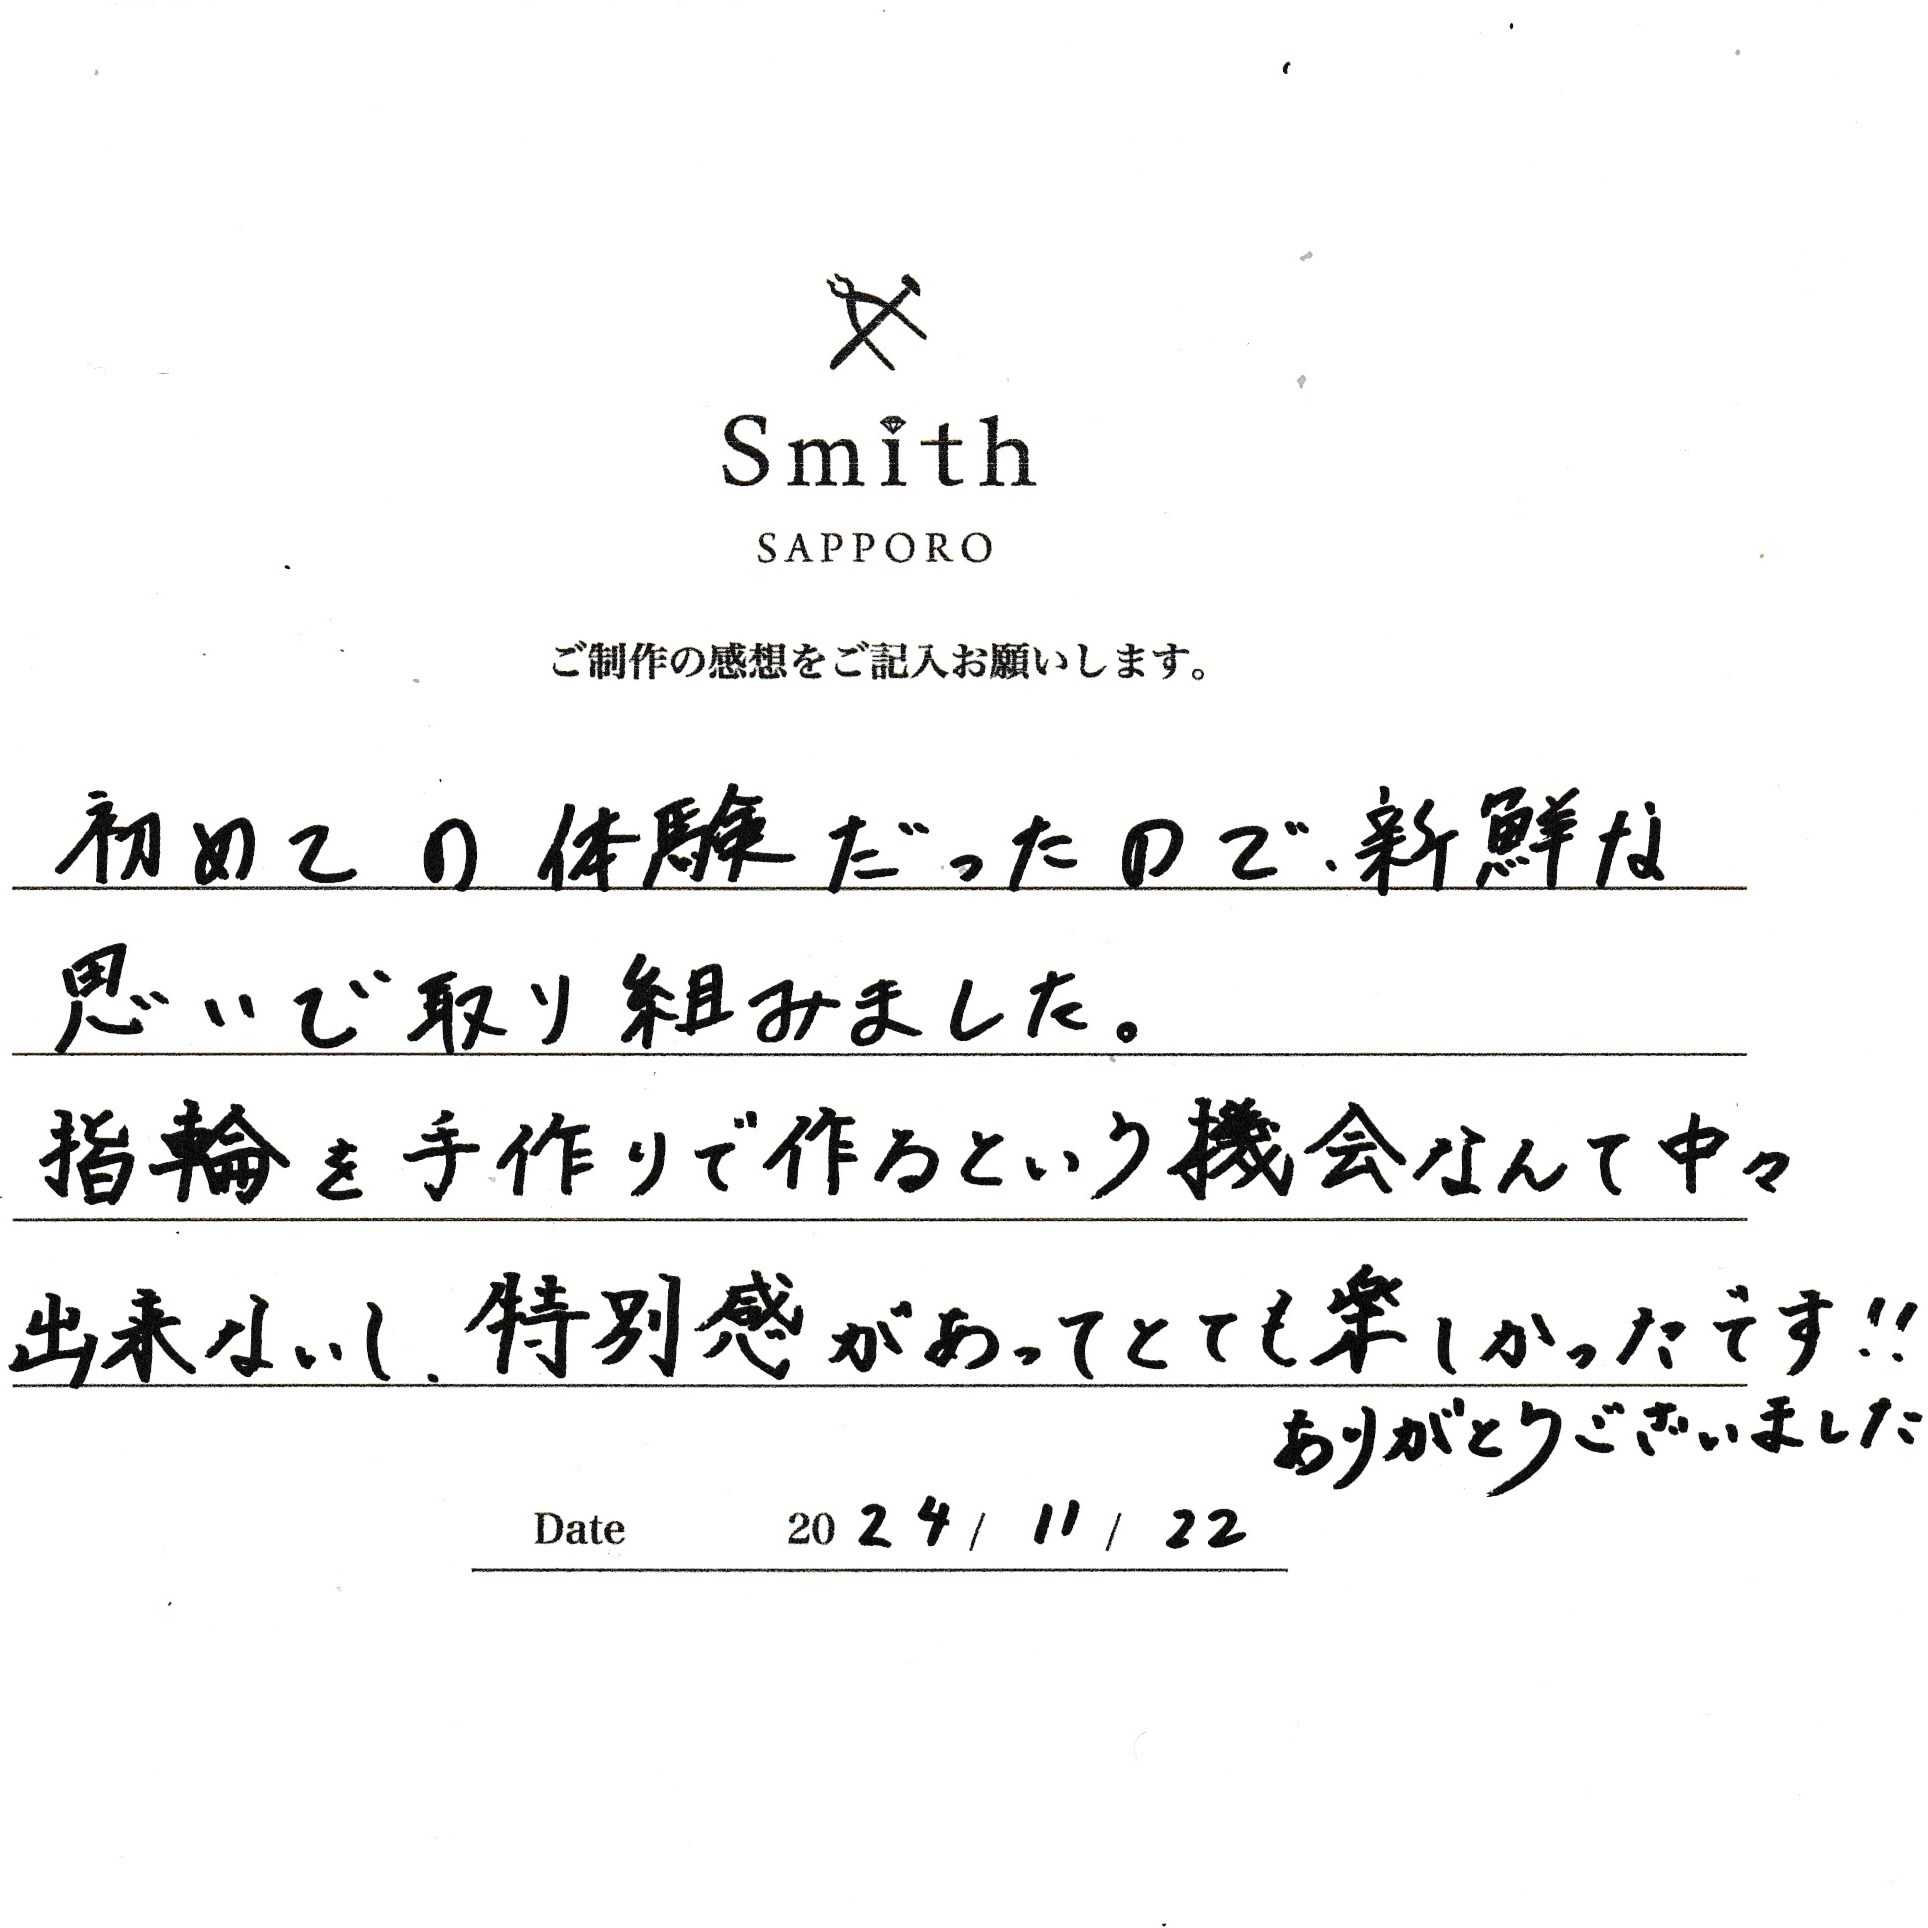 Smith
SAPPORO
ご制作の感想をご記入お願いします。
初めての体験だったので、新鮮な
思いで取り組みました。
指輪を手作りで作るという機会なんて中々
出来ないし、特別感があってとても楽しかったです!!
ありがとうございました
Date 2024/11/22